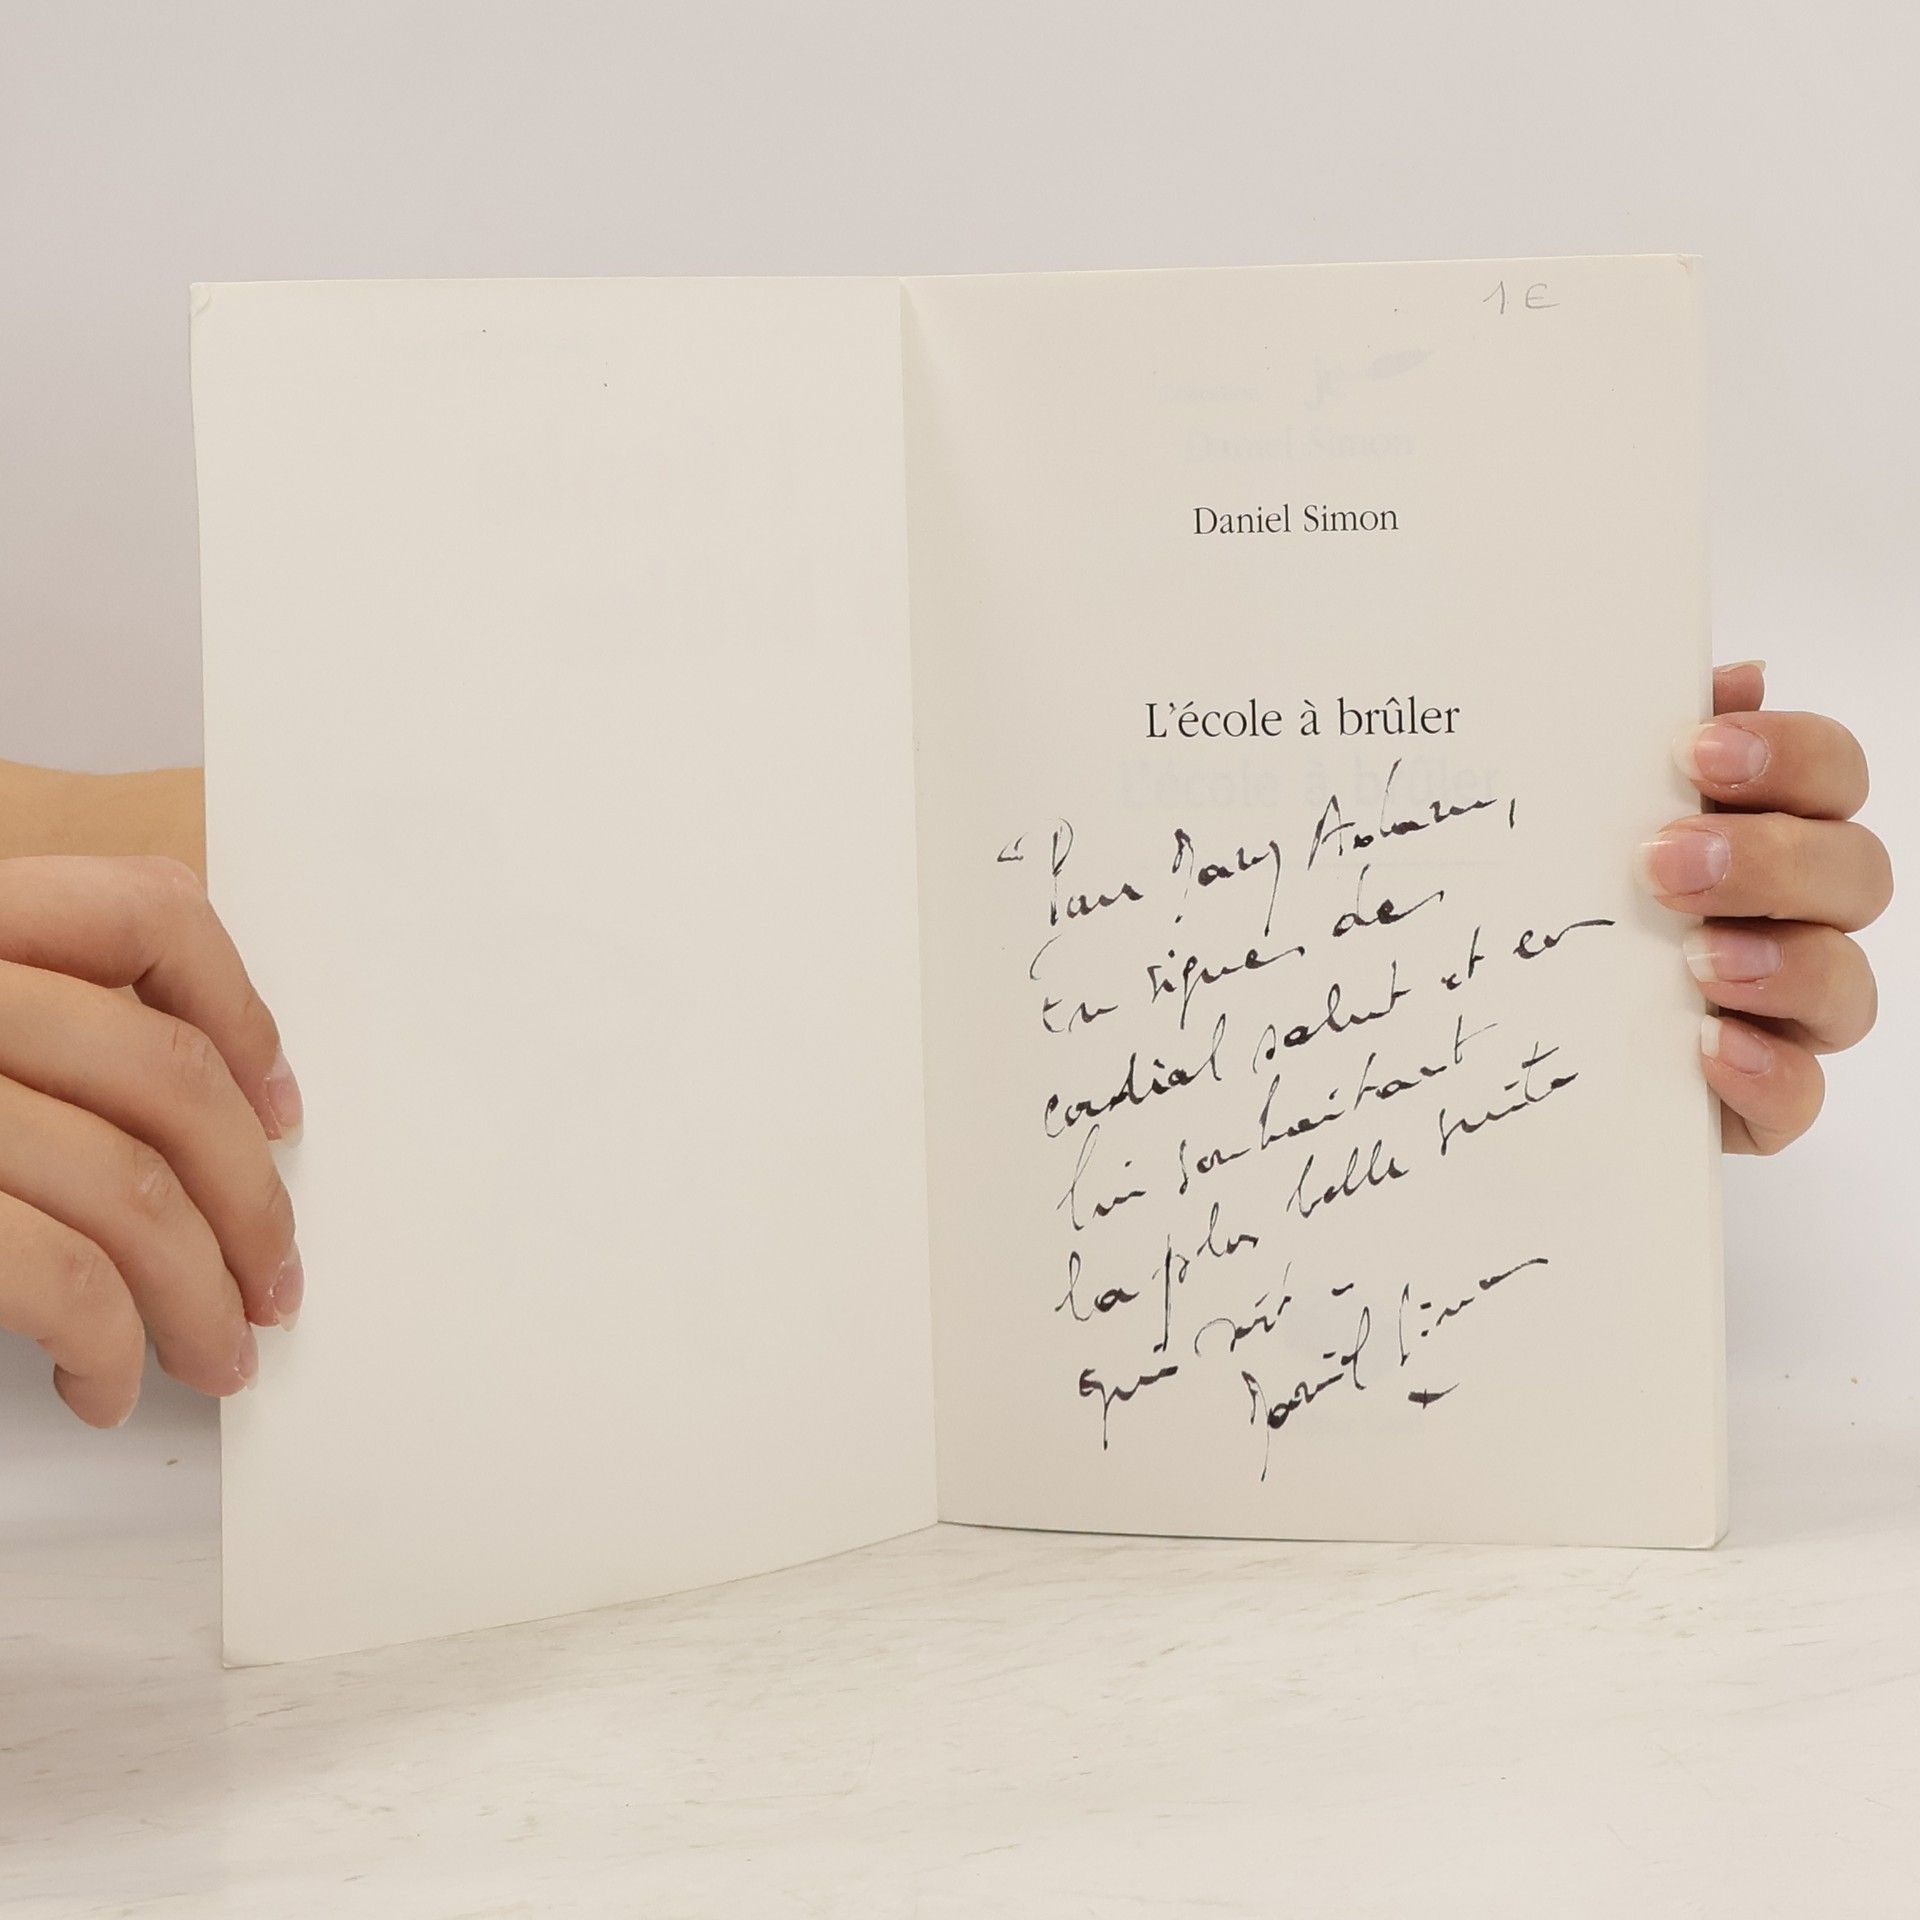 1 €
Daniel Simon
L'école à brûler
"Pour Mary Adam,
En signes de
cordial salut et en
lui souhaitant
la plus belle suite
qui soit -
Daniel Simon